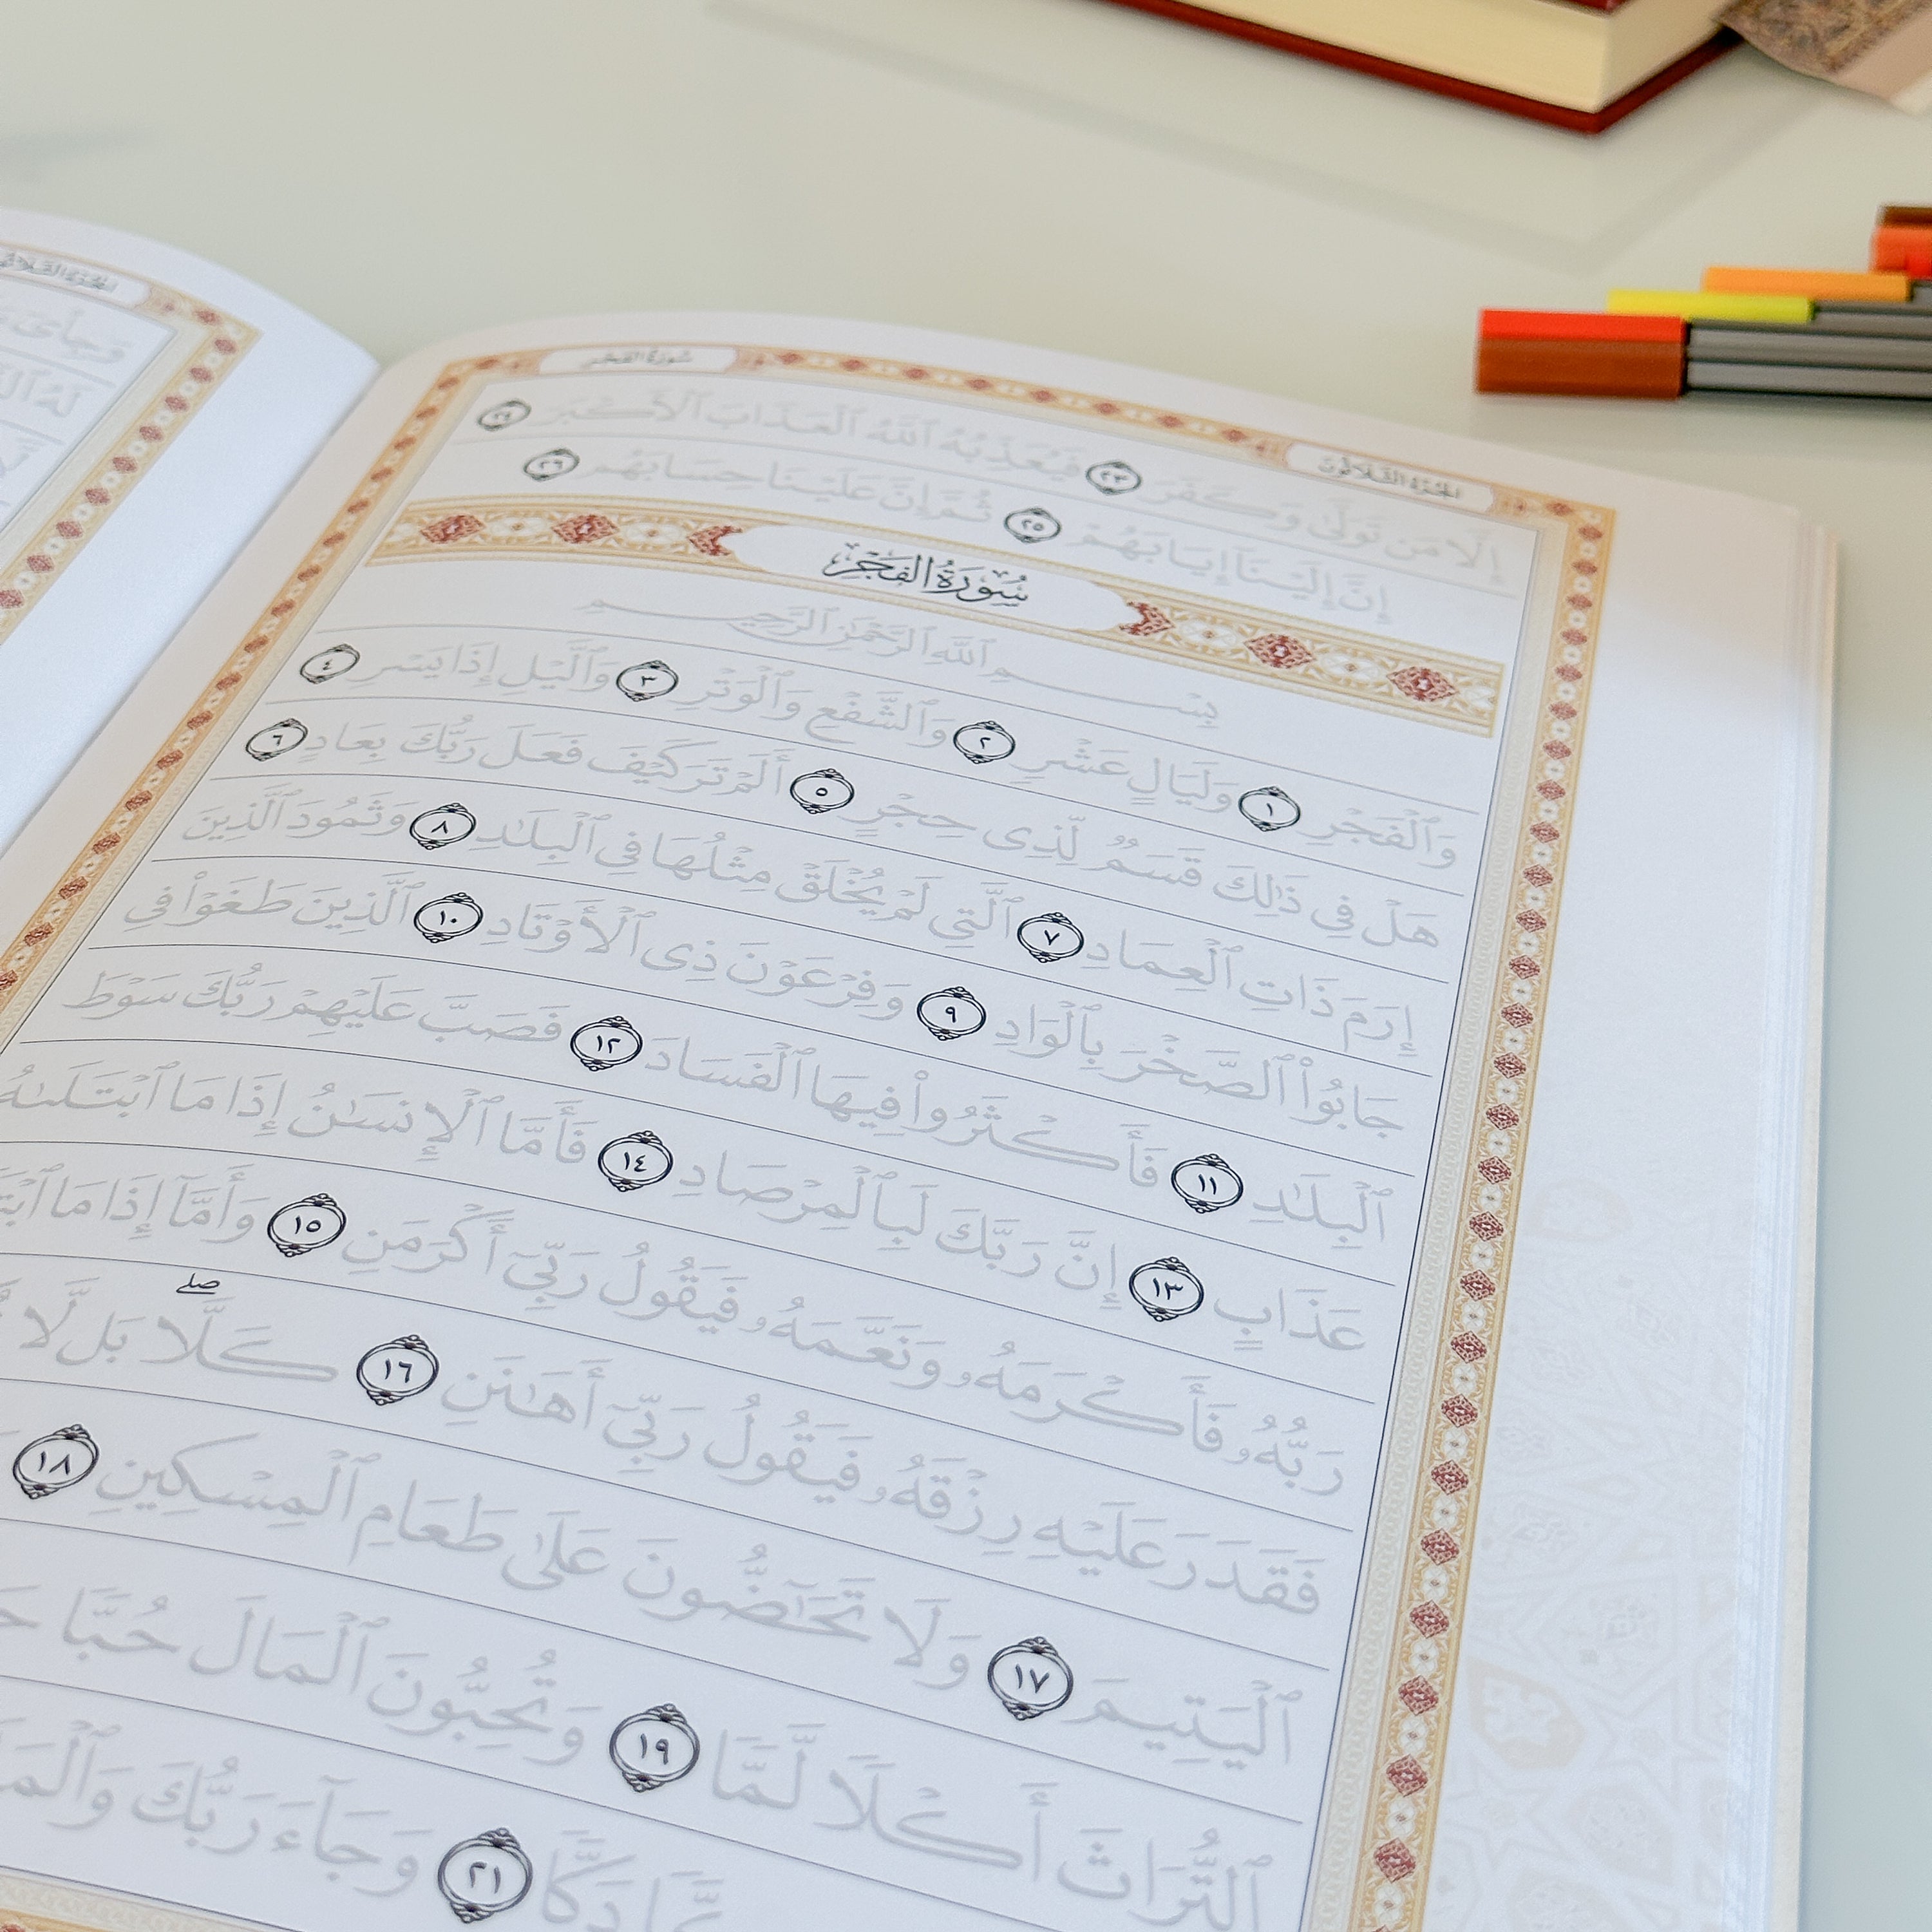 الجزء الثلاثون
سورة الفجر
الجزء الثلاثون
إِلَّا مَن تَوَلَّىٰ وَكَفَرَ ٢٣ فَيُعَذِّبُهُ ٱللَّهُ ٱلْعَذَابَ ٱلْأَكْبَرَ ٢٤
إِنَّ إِلَيْنَآ إِيَابَهُمْ ٢٥ ثُمَّ إِنَّ عَلَيْنَا حِسَابَهُم ٢٦
سُورَةُ الفَجْرِ
بِسْمِ ٱللَّهِ ٱلرَّحْمَٰنِ ٱلرَّحِيمِ
وَٱلْفَجْرِ ١ وَلَيَالٍ عَشْرٍ ٢ وَٱلشَّفْعِ وَٱلْوَتْرِ ٣ وَٱلَّيْلِ إِذَا يَسْرِ ٤
هَلْ فِى ذَٰلِكَ قَسَمٌ لِّذِى حِجْرٍ ٥ أَلَمْ تَرَ كَيْفَ فَعَلَ رَبُّكَ بِعَادٍ ٦
إِرَمَ ذَاتِ ٱلْعِمَادِ ٧ ٱلَّتِى لَمْ يُخْلَقْ مِثْلُهَا فِى ٱلْبِلَٰدِ ٨ وَثَمُودَ ٱلَّذِينَ
جَابُوا۟ ٱلصَّخْرَ بِٱلْوَادِ ٩ وَفِرْعَوْنَ ذِى ٱلْأَوْتَادِ ١٠ ٱلَّذِينَ طَغَوْا۟ فِى
ٱلْبِلَٰدِ ١١ فَأَكْثَرُوا۟ فِيهَا ٱلْفَسَادَ ١٢ فَصَبَّ عَلَيْهِمْ رَبُّكَ سَوْطَ
عَذَابٍ ١٣ إِنَّ رَبَّكَ لَبِٱلْمِرْصَادِ ١٤ فَأَمَّا ٱلْإِنسَٰنُ إِذَا مَا ٱبْتَلَىٰهُ
رَبُّهُۥ فَأَكْرَمَهُۥ وَنَعَّمَهُۥ فَيَقُولُ رَبِّىٓ أَكْرَمَنِ ١٥ وَأَمَّآ إِذَا مَا
فَقَدَرَ عَلَيْهِ رِزْقَهُۥ فَيَقُولُ رَبِّىٓ أَهَٰنَنِ ١٦ كَلَّا ۖ بَل لَّا
ٱلْيَتِيمَ ١٧ وَلَا تَحَٰٓضُّونَ عَلَىٰ طَعَامِ ٱلْمِسْكِينِ ١٨
ٱلتُّرَاثَ أَكْلًا لَّمًّا ١٩ وَتُحِبُّونَ ٱلْمَالَ حُبًّا
دَكًّا ٢١ وَجَآءَ رَبُّكَ